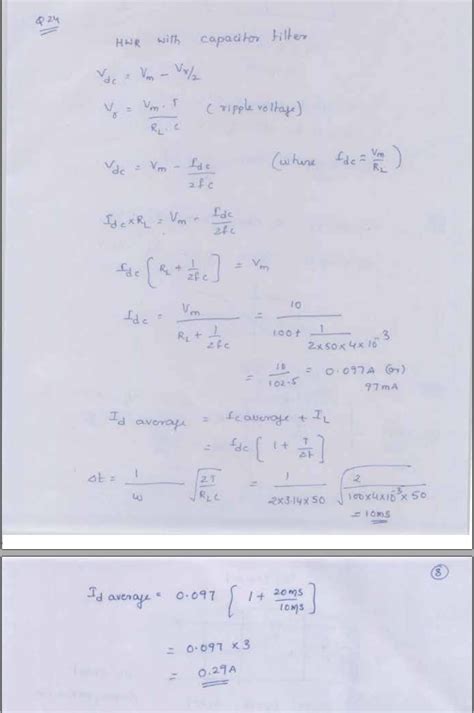 Q 24
HWR with capacitor filter
V_dc = V_m - V_r/2
V_r = V_m . T / R_L . C (ripple voltage)
V_dc = V_m - I_dc / 2fc (where I_dc ≈ V_m / R_L)
I_dc × R_L = V_m - I_dc / 2fc
I_dc [ R_L + 1 / 2fc ] = V_m
I_dc = V_m / R_L + 1 / 2fc = 10 / 100 + 1 / 2×50×4×10^-3
= 10 / 102.5 = 0.097A (or) 97mA
I_d average = I_c average + I_L
= I_dc [ 1 + T / Δt ]
Δt = 1 / ω √ 2T / R_L C = 1 / 2×3.14×50 √ 2 / 100×4×10^-3×50
= 10ms
8
I_d average = 0.097 [ 1 + 20ms / 10ms ]
= 0.097 × 3
= 0.29A